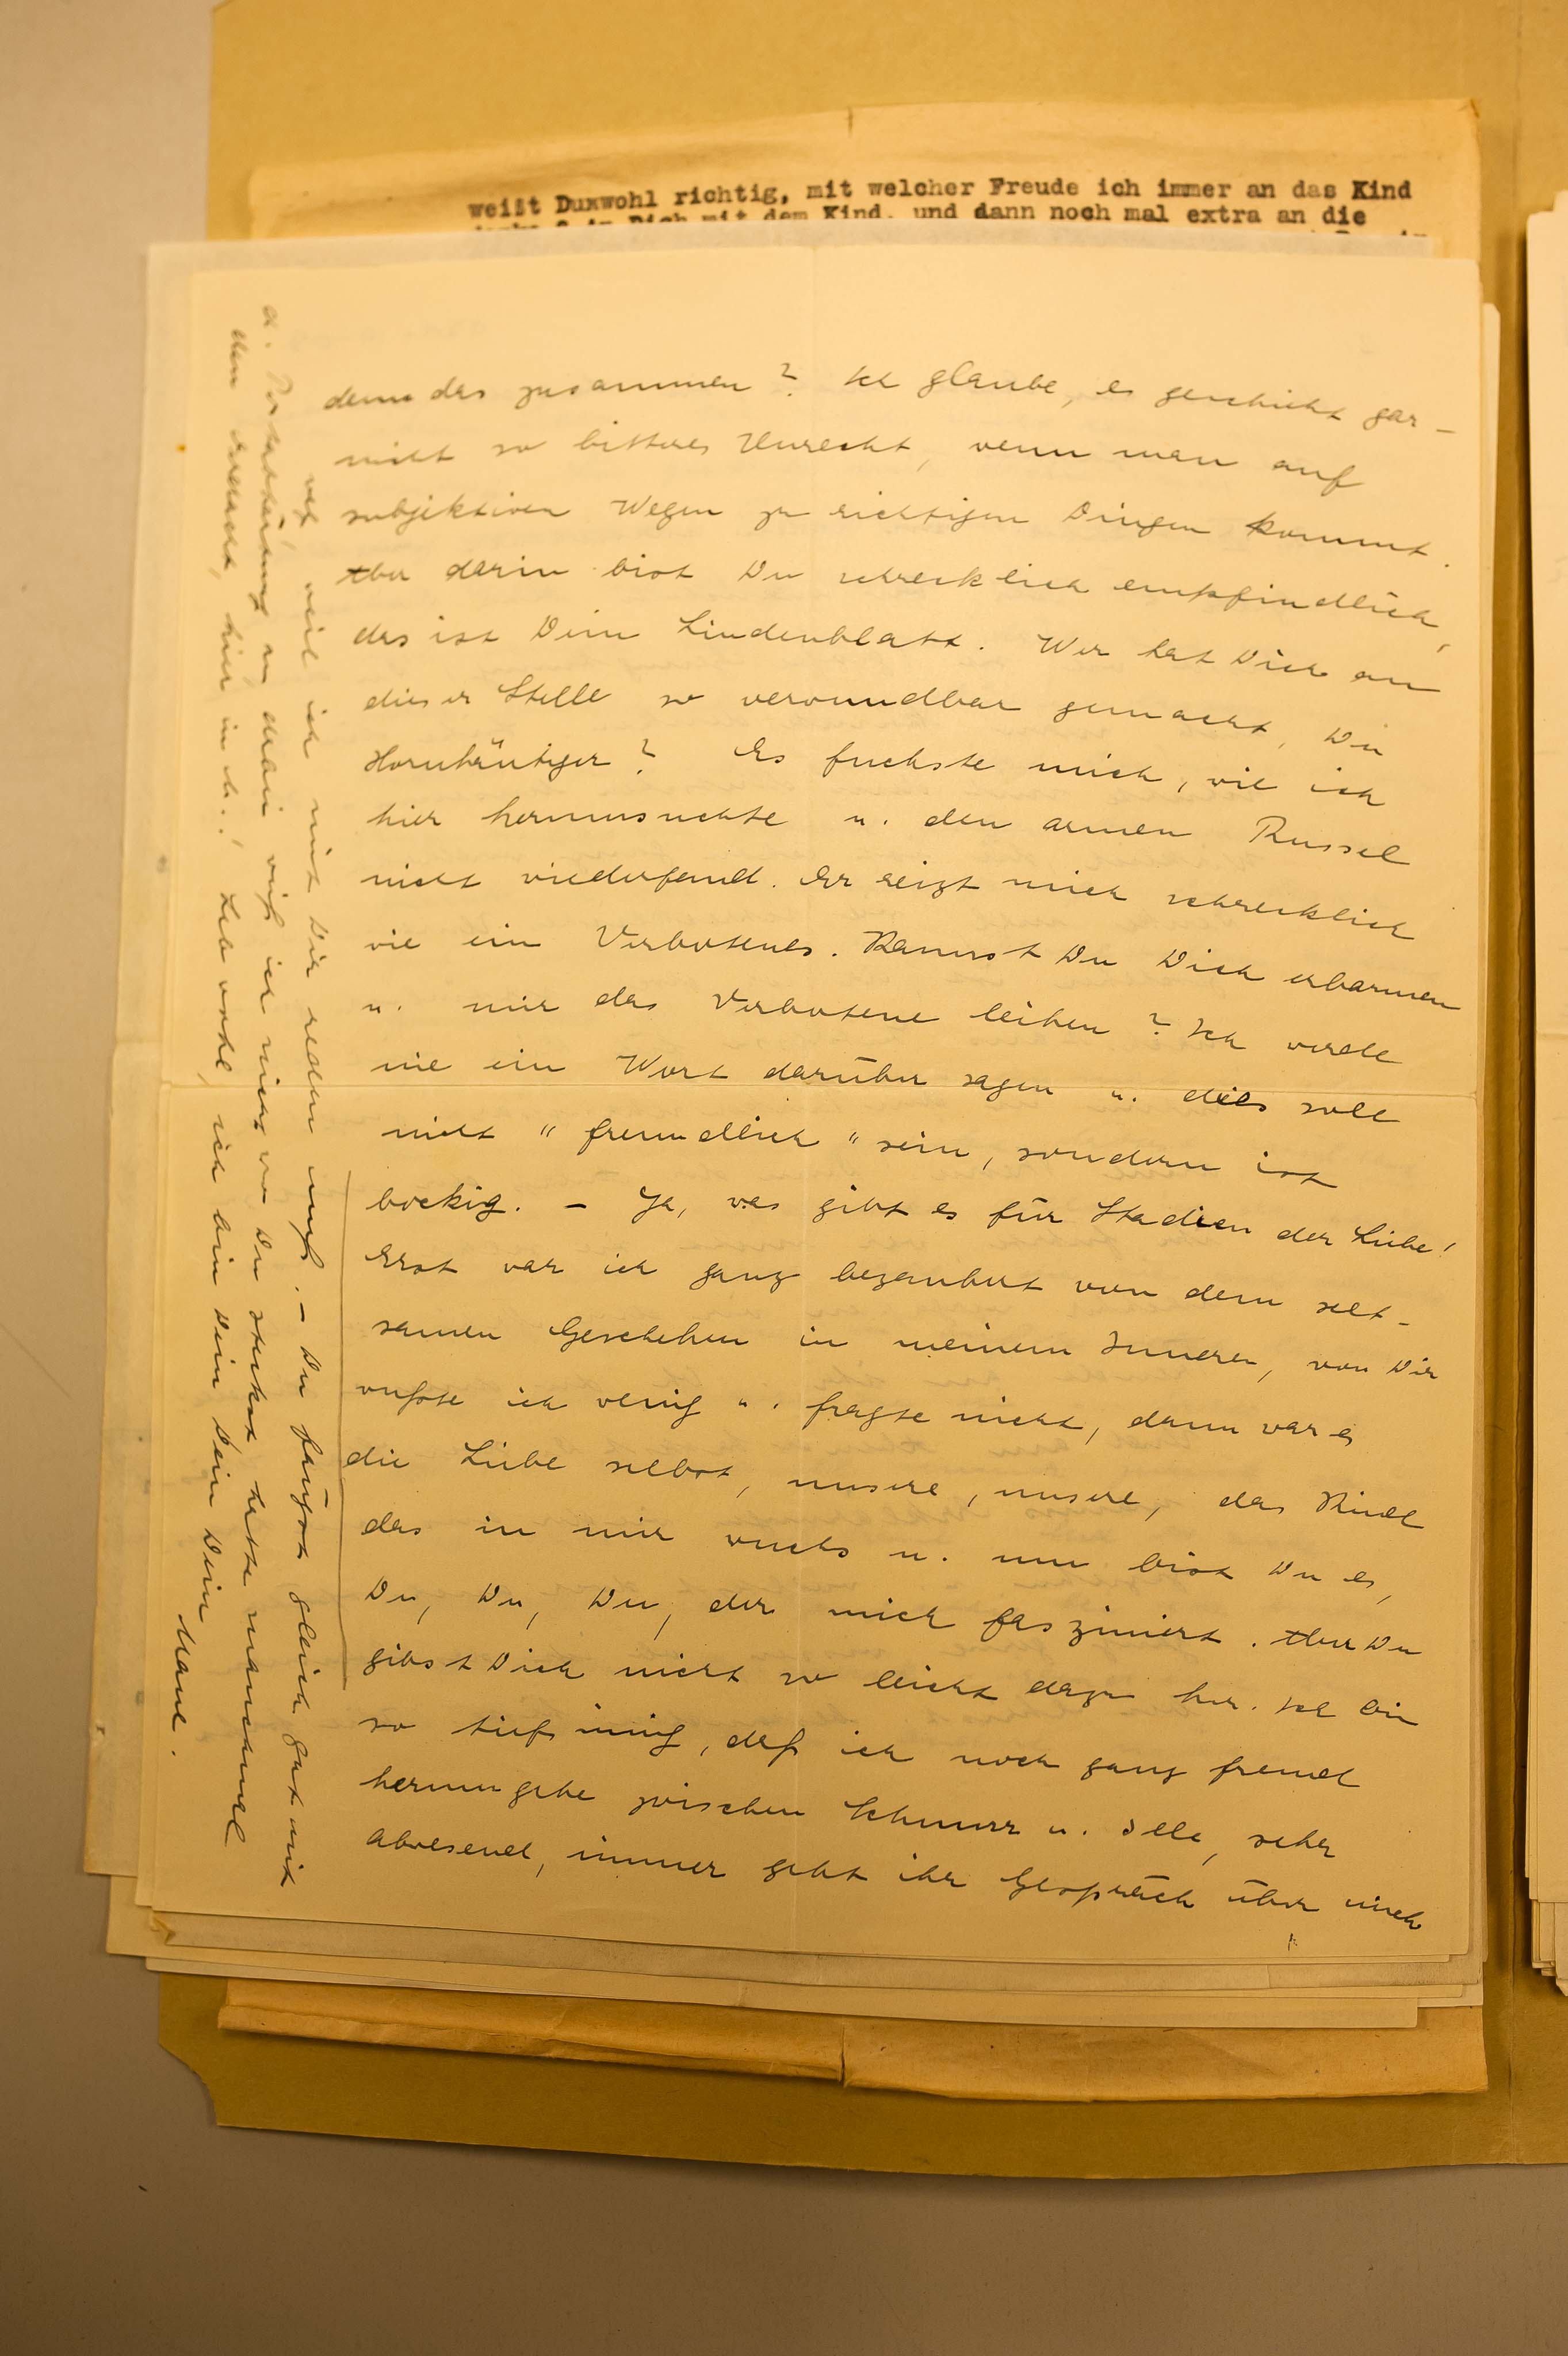 weißt Duxwohl richtig, mit welcher Freude ich immer an das Kind
Dich mit dem Kind, und dann noch mal extra an die
denn das zusammen? Ich glaube, es geschieht gar-
nicht so bitteres Unrecht, wenn man auf
subjektiven Wegen zu richtigen Dingen kommt.
Aber darin bist Du schrecklich empfindlich,
das ist Dein Lindenblatt. Wer hat Dich an
dieser Stelle so verwundbar gemacht, Du
Hornhäutiger? Es fuchste mich, wie ich
hier herumsuchte u. den armen Russel
nicht wiederfand. Er reizt mich schrecklich
wie ein Verbotenes. Kannst Du Dich erbarmen
u. mir das Verbotene leihen? Ich werde
nie ein Wort darüber sagen u. dies soll
nicht "freundlich" sein, sondern ist
bockig. - Ja, was gibt es für Stadien der Liebe!
Erst war ich ganz bezaubert von dem selt-
samen Geschehen in meinem Inneren, von Dir
wußte ich wenig u. fragte nicht, dann war es
die Liebe selbst, unsere, unsere, das Kind
das in mir wuchs u. nun bist Du es,
Du, Du, Du, der mich fasziniert. Aber Du
gibst Dich nicht so leicht dazu her. Ich bin
so tiefsinnig, daß ich noch ganz fremd
herumgehe zwischen Schnurr u. Ille, sehr
abwesend, immer geht ihr Gespräch über mich
weg, weil ich mit Dir reden muß. - Du fängst gleich gut mit
d. Postsperrung an, denn weiß ich nicht wo Du steckst hätte manchmal
den Verdacht, hier in M.! Leb wohl, ich bin Dein Dein Dein